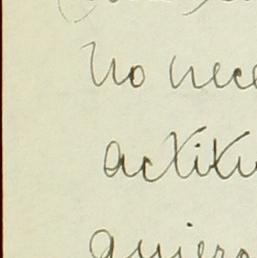 no nece
actitu
quiero